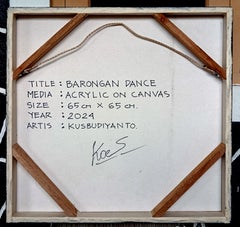 TITLE : BARONGAN DANCE
MEDIA : ACRYLIC ON CANVAS
SIZE : 65 cm X 65 cm.
YEAR : 2024
ARTIS : KUSBUDIYANTO.
Koes